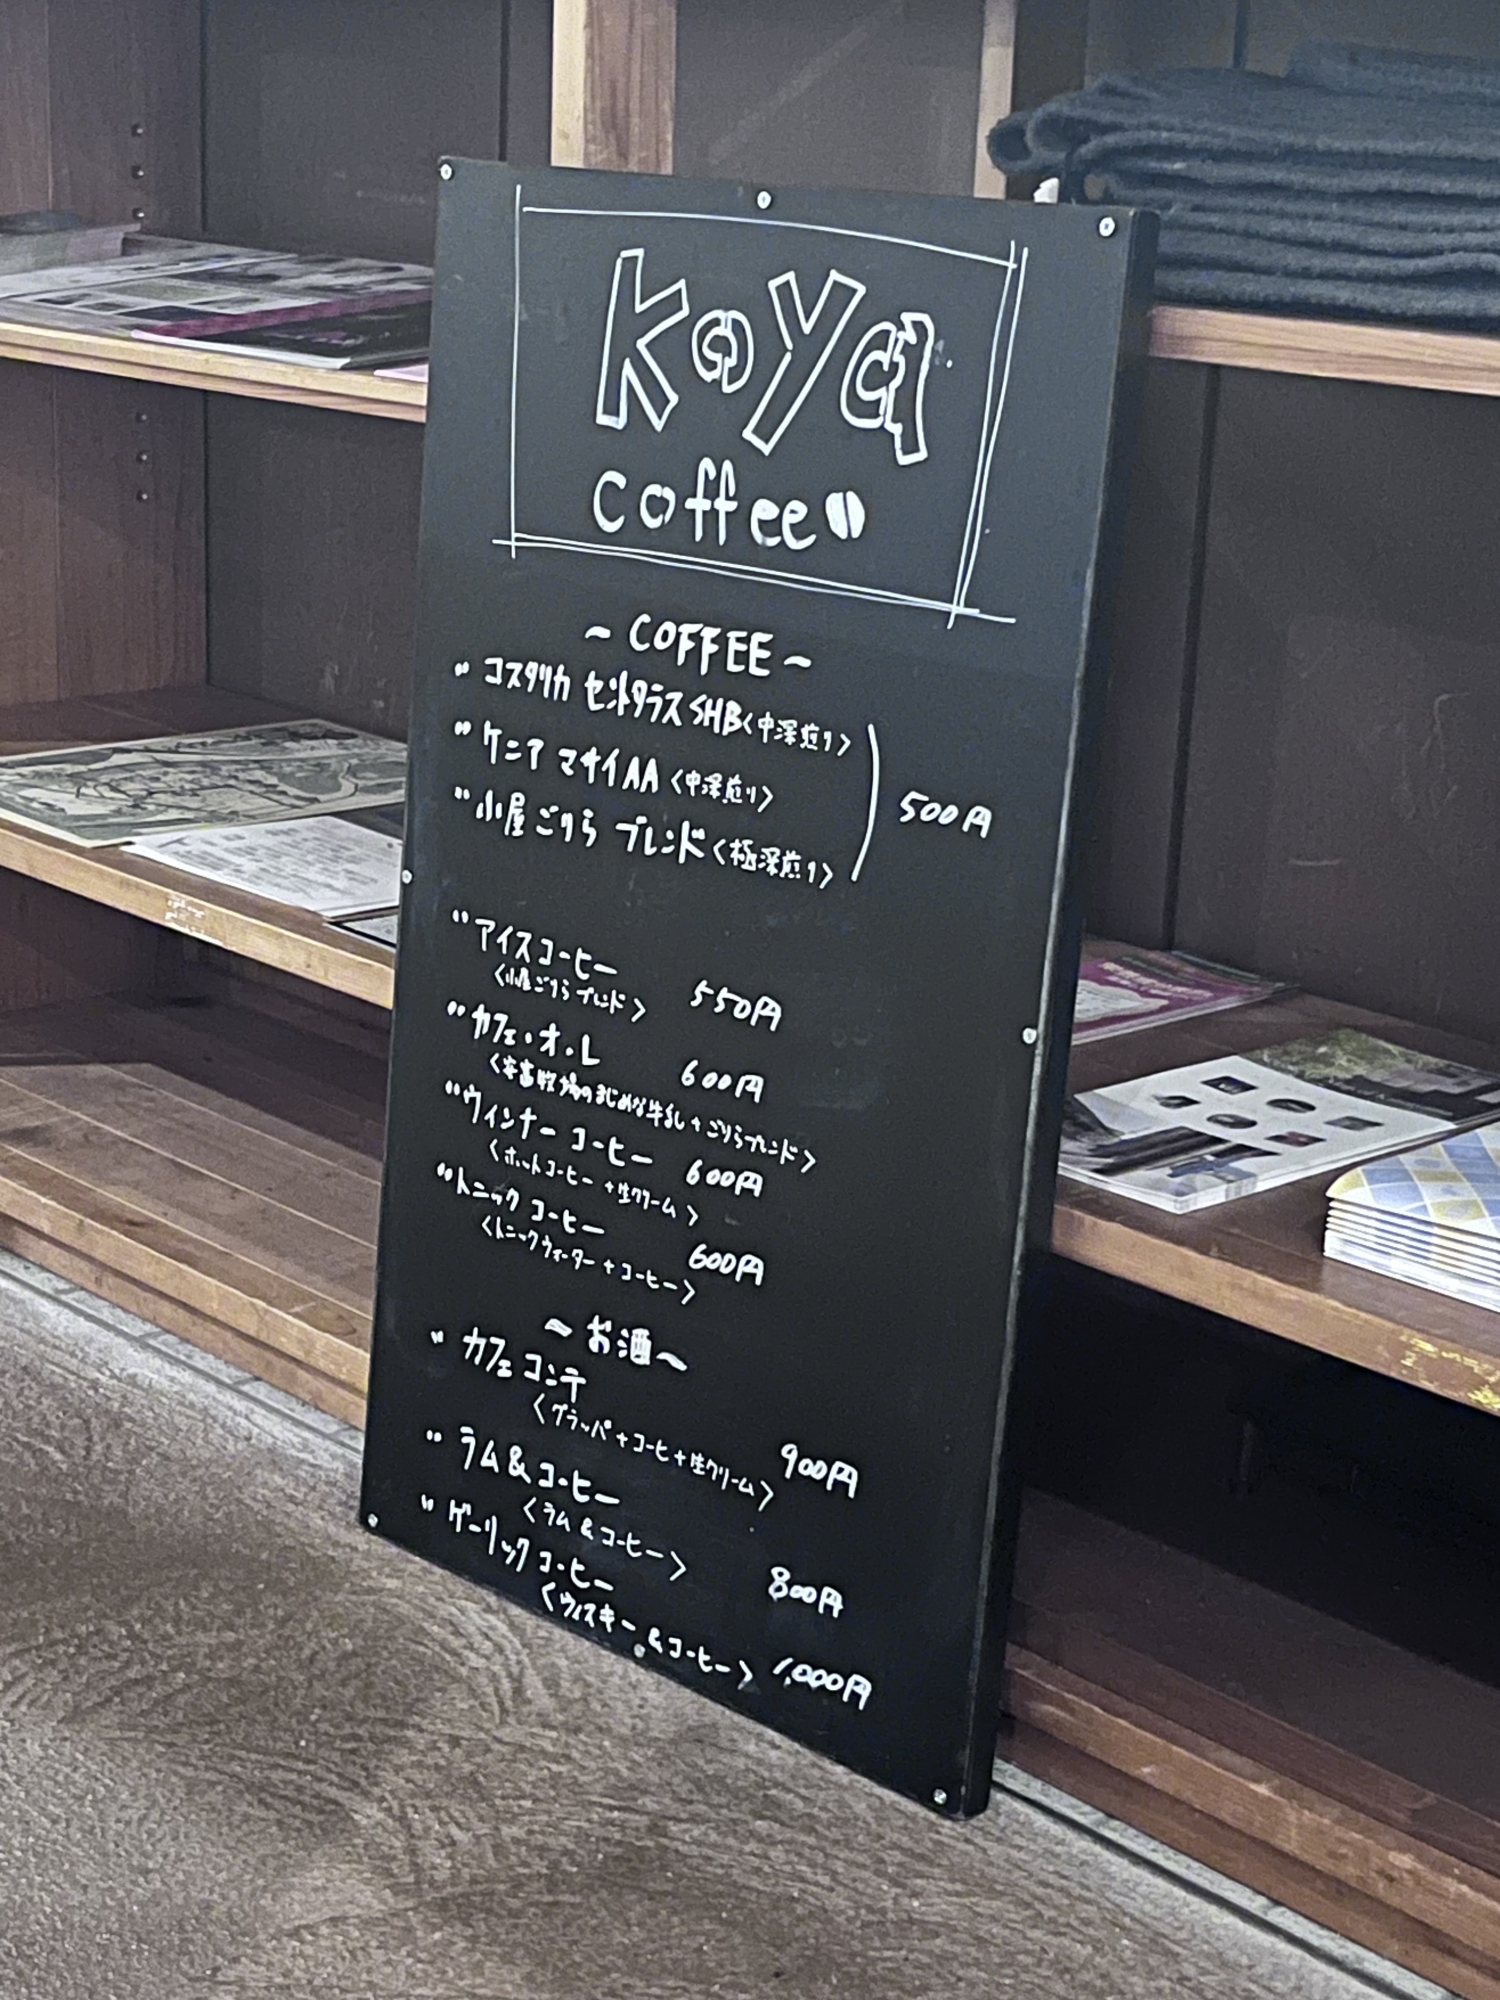 Koya
coffee
~ COFFEE ~
" コスタリカ セントタラス SHB <中深煎り>
" ケニア マサイAA <中深煎り>
500円
" 小屋ごりら ブレンド <極深煎り>
" アイスコーヒー
<小屋ごりらブレンド> 550円
" カフェ・オ・レ 600円
<安富牧場のまじめな牛乳+ごりらブレンド>
" ウィンナー コーヒー 600円
<ホットコーヒー+生クリーム>
" トニック コーヒー 600円
<トニックウォーター+コーヒー>
~ お酒 ~
" カフェ コンテ
<グラッパ+コーヒ+生クリーム> 900円
" ラム&コーヒー
<ラム&コーヒー> 800円
" ゲーリック コーヒー
<ウイスキー&コーヒー> 1,000円